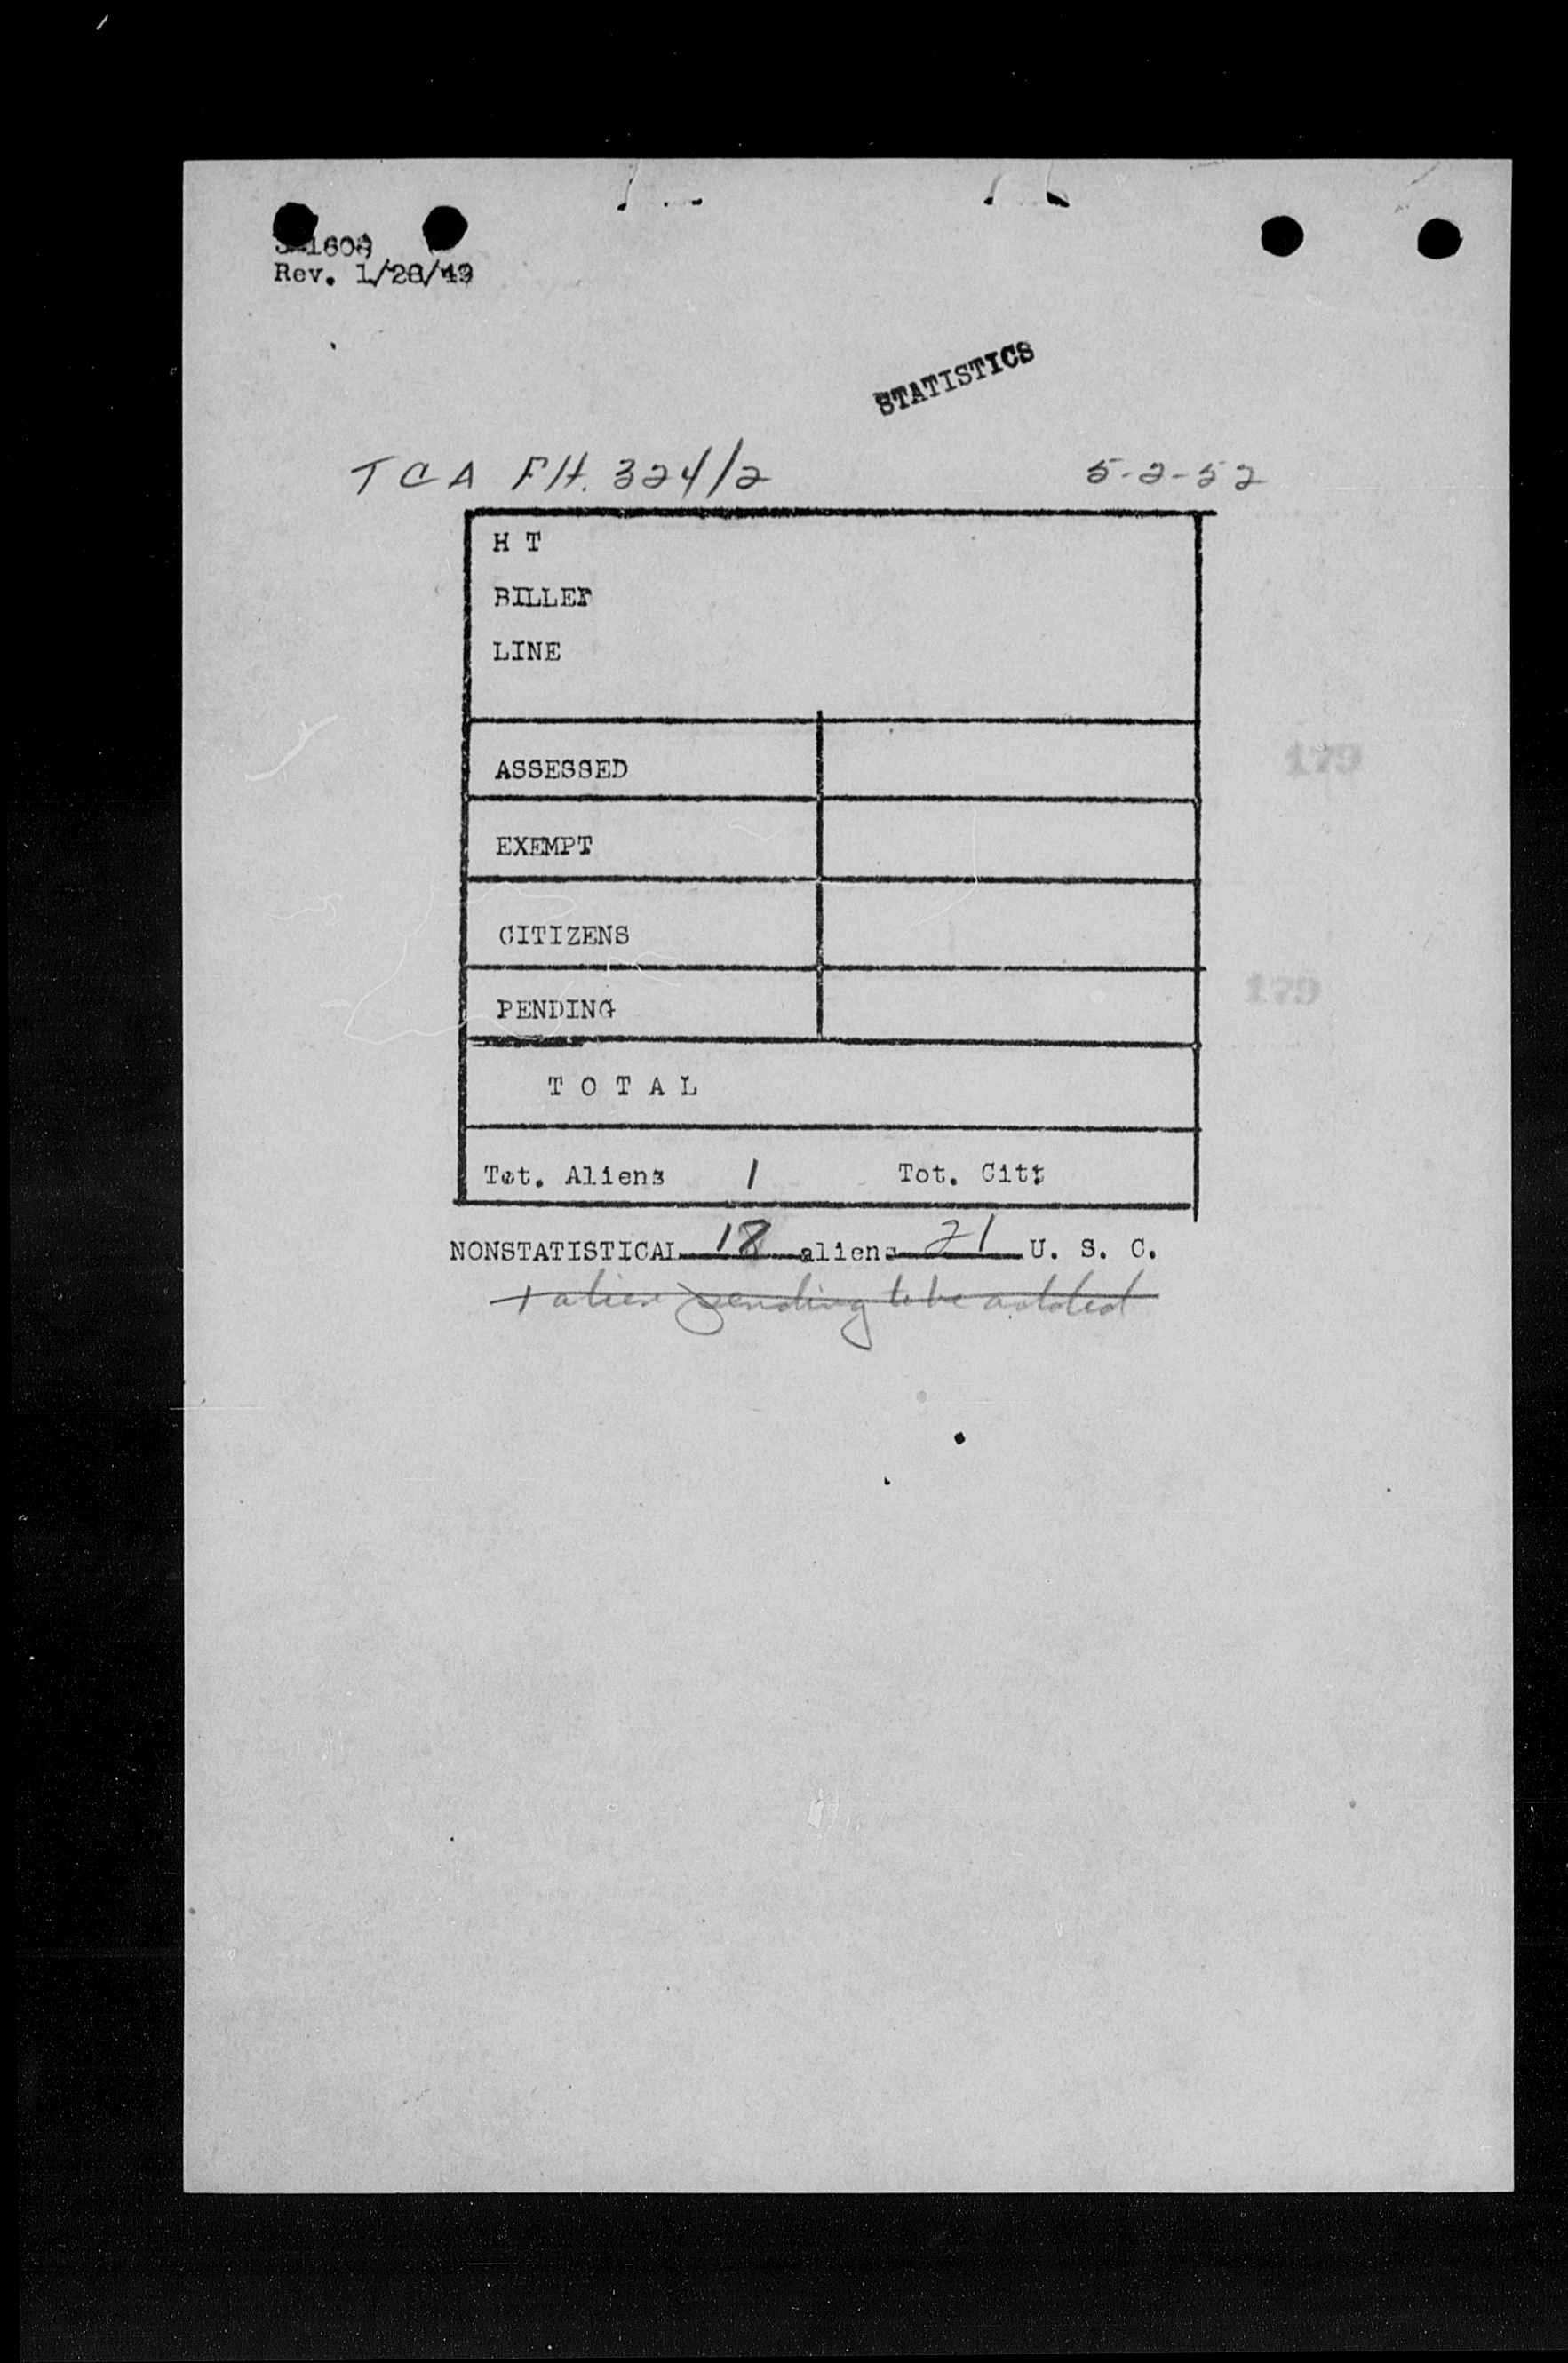 Rev. 1/28/49
STATISTICS
TCA Flt. 324/2 5-2-52
H T
BILLET
LINE
ASSESSED
EXEMPT
CITIZENS
PENDING
T O T A L
Tot. Aliens 1 Tot. Citz
NONSTATISTICAL 18 aliens 21 U. S. C.
1 alien pending to be added
179
179